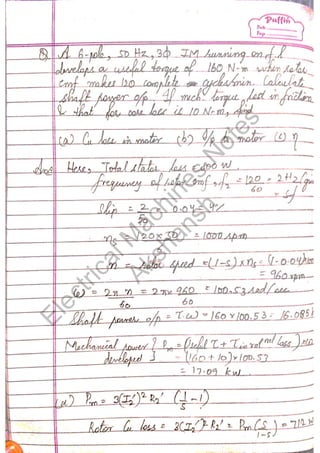 Puffin
Date
Page
Q A 6-pole, 50 Hz, 3Φ IM running on f.l
develops a useful torque of 160 N-m when rotor
emf makes 120 complete cycles/min. Calculate
shaft power o/p. If mech. torque lost in friction
& that for core loss is 10 N-m,
(a) Cu loss in motor (b) I/p to motor (c) η
Ans Here, Total stator loss = 800 W
frequency of rotor emf, f2 = 120/60 = 2Hz
= sf
Slip = 2/50 = 0.04 = 4%
ns = 120×50 = 1000 rpm
n = rotor speed = (1-s) × ns = (1-0.04)
= 960 rpm
ω = 2πn/60 = 2π×960/60 = 100.53 rad/sec
Shaft power o/p = T.ω = 160×100.53 = 16.085
Mechanical power developed } Pm = (Useful τ + τ in rotnal loss)
= (160+10)×100.53
= 17.09 kW
(a) Pm = 3(I2')² R2' (1/s - 1)
Rotor Cu loss = 3(I2')² R2' = Pm (s/1-s) = 712 W
Electrical Machines Notes
Akanksh